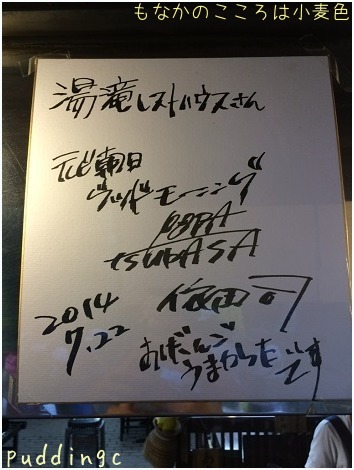 もなかのこころは小麦色
湯滝レストハウスさん
テレビ朝日
グッドモーニング
YODA
TSUBASA
依田司
2014
7.22
おだんご
うまかったです
puddingc